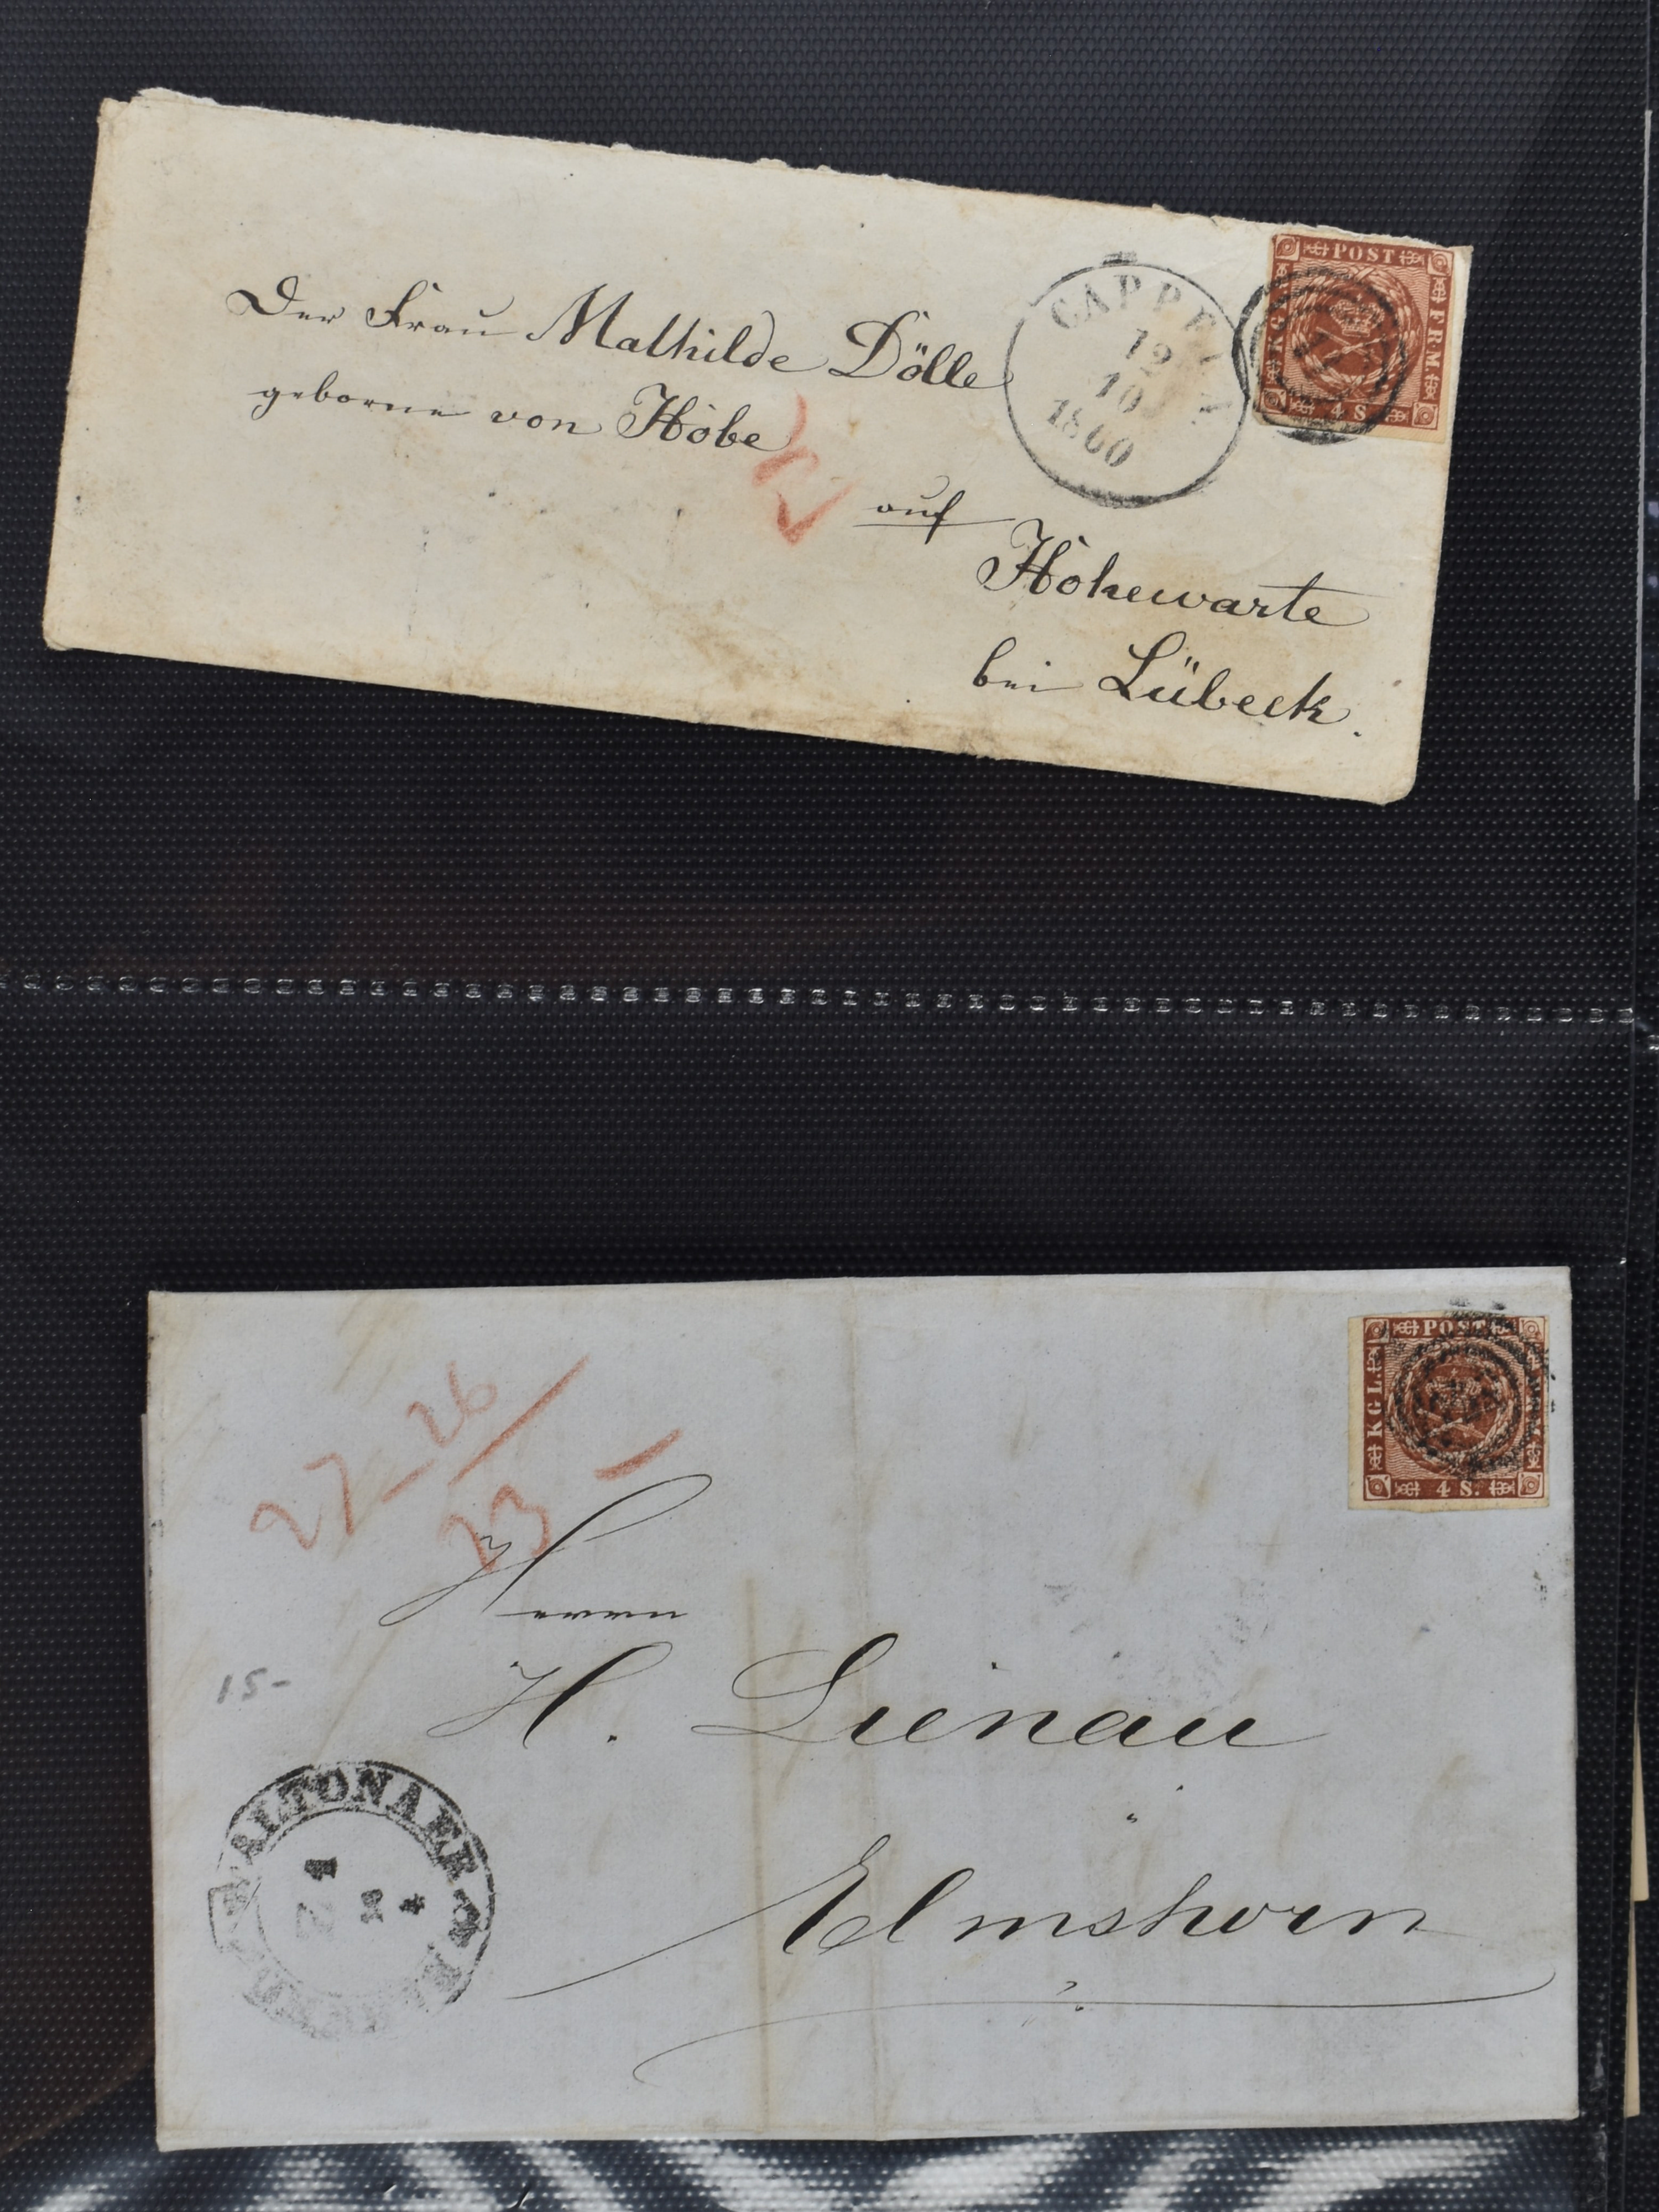 Der Frau Mathilde Dölle
geborne von Höbe
auf
Hohewarte
bei Lübeck.
CAPPELN
12
10
1860
POST
KGL
FRM
4 S.
27-26/
23 -
Herrn
H. Lienau
Elmshorn
15-
ALTONAER
POST
KGL
4 S.